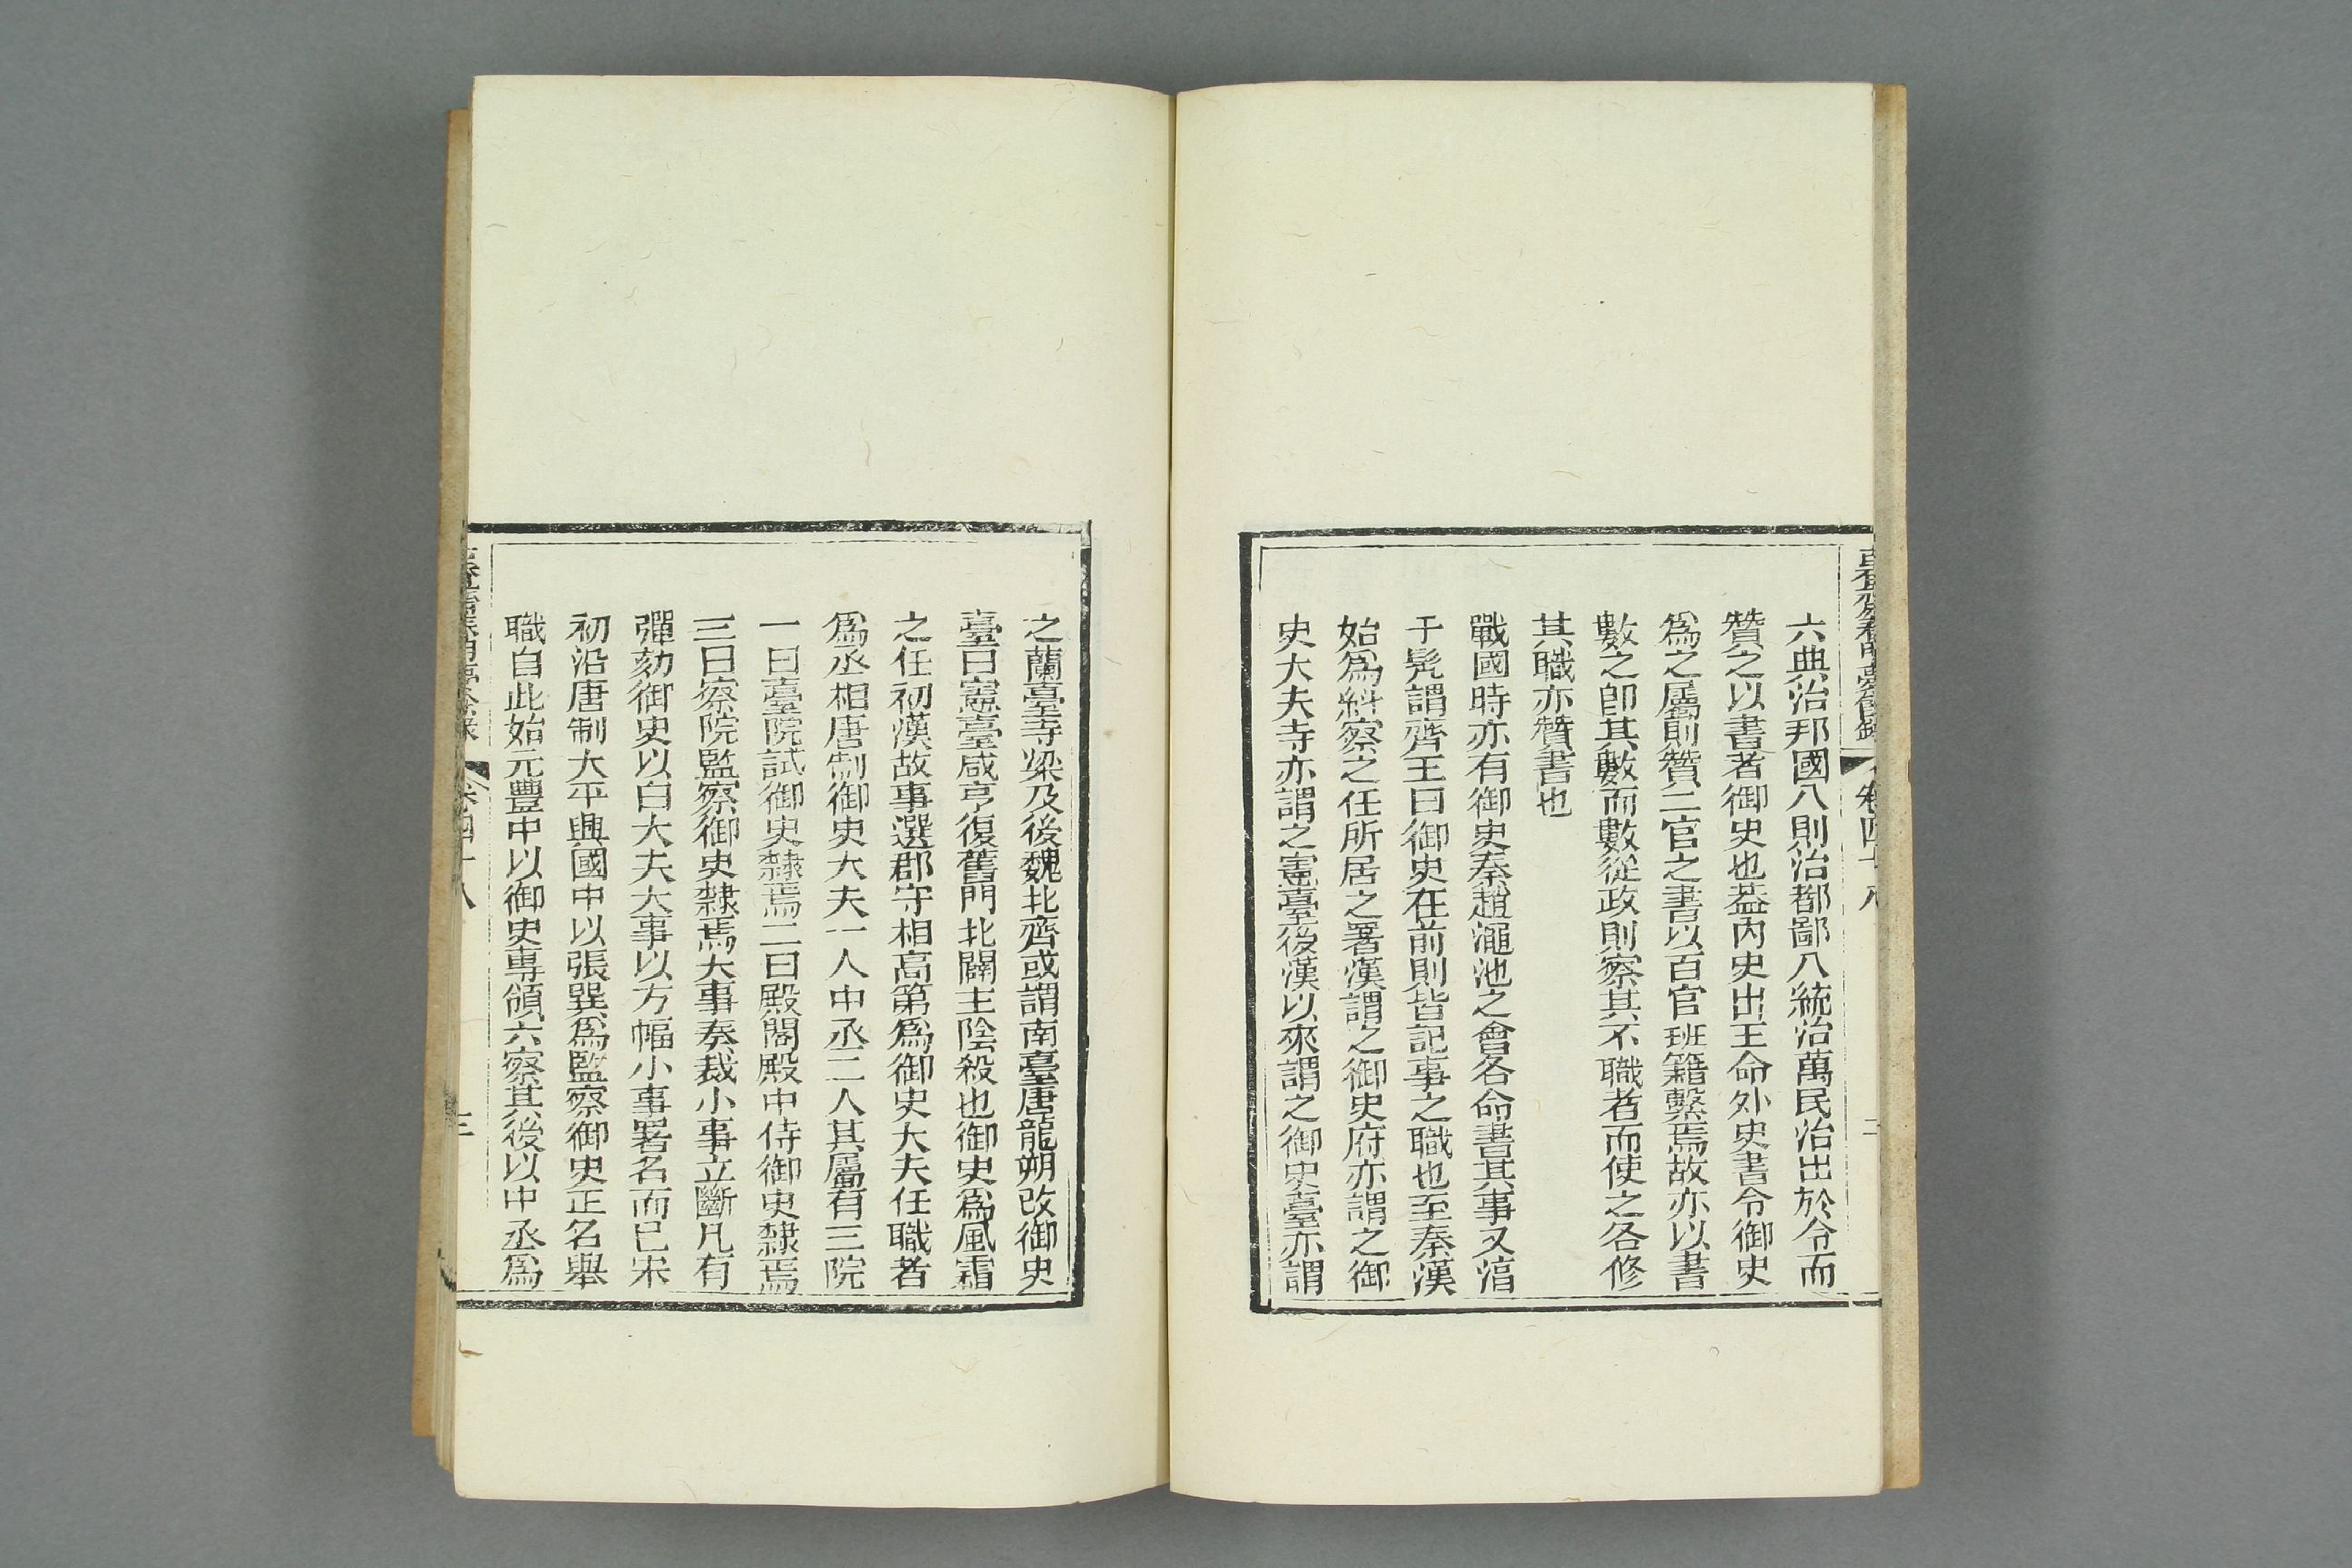 六典治邦國八則治都鄙八統治萬民治出於令而
贊之以書者御史也葢內史出王命外史書令御史
爲之屬則贊二官之書以百官班籍繫焉故亦以書
數之卽其數而數從政則察其不職者而使之各修
其職亦贊書也
戰國時亦有御史秦趙澠池之會各命書其事又淳
于髠謂齊王曰御史在前則皆記事之職也至秦漢
始爲糾察之任所居之署漢謂之御史府亦謂之御
史大夫寺亦謂之憲臺後漢以來謂之御史臺亦謂
之蘭臺寺梁及後魏北齊或謂南臺唐龍朔改御史
臺曰憲臺咸亨復舊門北闢主陰殺也御史爲風霜
之任初漢故事選郡守相高第爲御史大夫任職者
爲丞相唐制御史大夫一人中丞二人其屬有三院
一曰臺院試御史隸焉二曰殿閣殿中侍御史隸焉
三曰察院監察御史隸焉大事奏裁小事立斷凡有
彈劾御史以白大夫大事以方幅小事署名而已宋
初沿唐制大平興國中以張巽爲監察御史正名舉
職自此始元豐中以御史専領六察其後以中丞爲
卷四十八
三